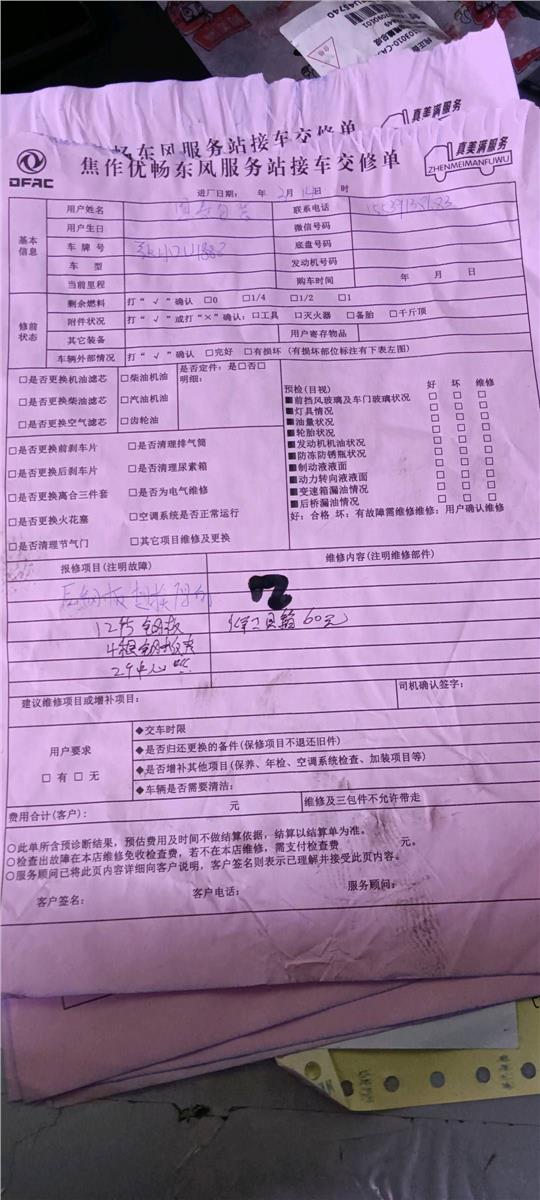 畅东风服务站接车交修单
真美满服务
DFAC
焦作优畅东风服务站接车交修单
真美满服务
ZHENMEIMANFUWU
进厂日期： 年 2月 14日 时
基本信息
用户姓名 联系电话
用户生日 微信号码
车牌号 底盘号码
车 型 发动机号码
当前里程 购车时间 年 月 日
修前状态
剩余燃料 打“√”确认 □0 □1/4 □1/2 □1
附件状况 打“√”或打“×”确认：□工具 □灭火器 □备胎 □千斤顶
其它装备 用户寄存物品
车辆外部情况 打“√”确认 □完好 □有损坏（有损坏部位标注有下表左图）
□是否更换机油滤芯 □柴油机油 是否定件：是□否□
明细：
□是否更换柴油滤芯 □汽油机油
□是否更换空气滤芯 □齿轮油
预检(目视) 好 坏 维修
■前挡风玻璃及车门玻璃状况 □ □ □
■灯具情况 □ □ □
■油量状况 □ □ □
■轮胎状况 □ □ □
■发动机机油状况 □ □ □
■防冻防锈瓶状况 □ □ □
■制动液液面 □ □ □
■动力转向液液面 □ □ □
■变速箱漏油情况 □ □ □
■后桥漏油情况 □ □ □
好：合格 坏：有故障需维修维修：用户确认维修
□是否更换前刹车片 □是否清理排气筒
□是否更换后刹车片 □是否清理尿素箱
□是否更换离合三件套 □是否为电气维修
□是否更换火花塞 □空调系统是否正常运行
□是否清理节气门 □其它项目维修及更换
报修项目(注明故障) 维修内容(注明维修部件)
后钢板
60元
建议维修项目或增补项目： 司机确认签字：
用户要求
□ 有 □ 无
◆交车时限
◆是否归还更换的备件(保修项目不退还旧件)
◆是否增补其他项目(保养、年检、空调系统检查、加装项目等)
◆车辆是否需要清洁：
费用合计(客户)： 元 维修及三包件不允许带走
○此单所含预诊断结果，预估费用及时间不做结算依据，结算以结算单为准。
○检查出故障在本店维修免收检查费，若不在本店维修，需支付检查费 元。
○服务顾问已将此页内容详细向客户说明，客户签名则表示已理解并接受此页内容。
客户签名： 客户电话： 服务顾问：